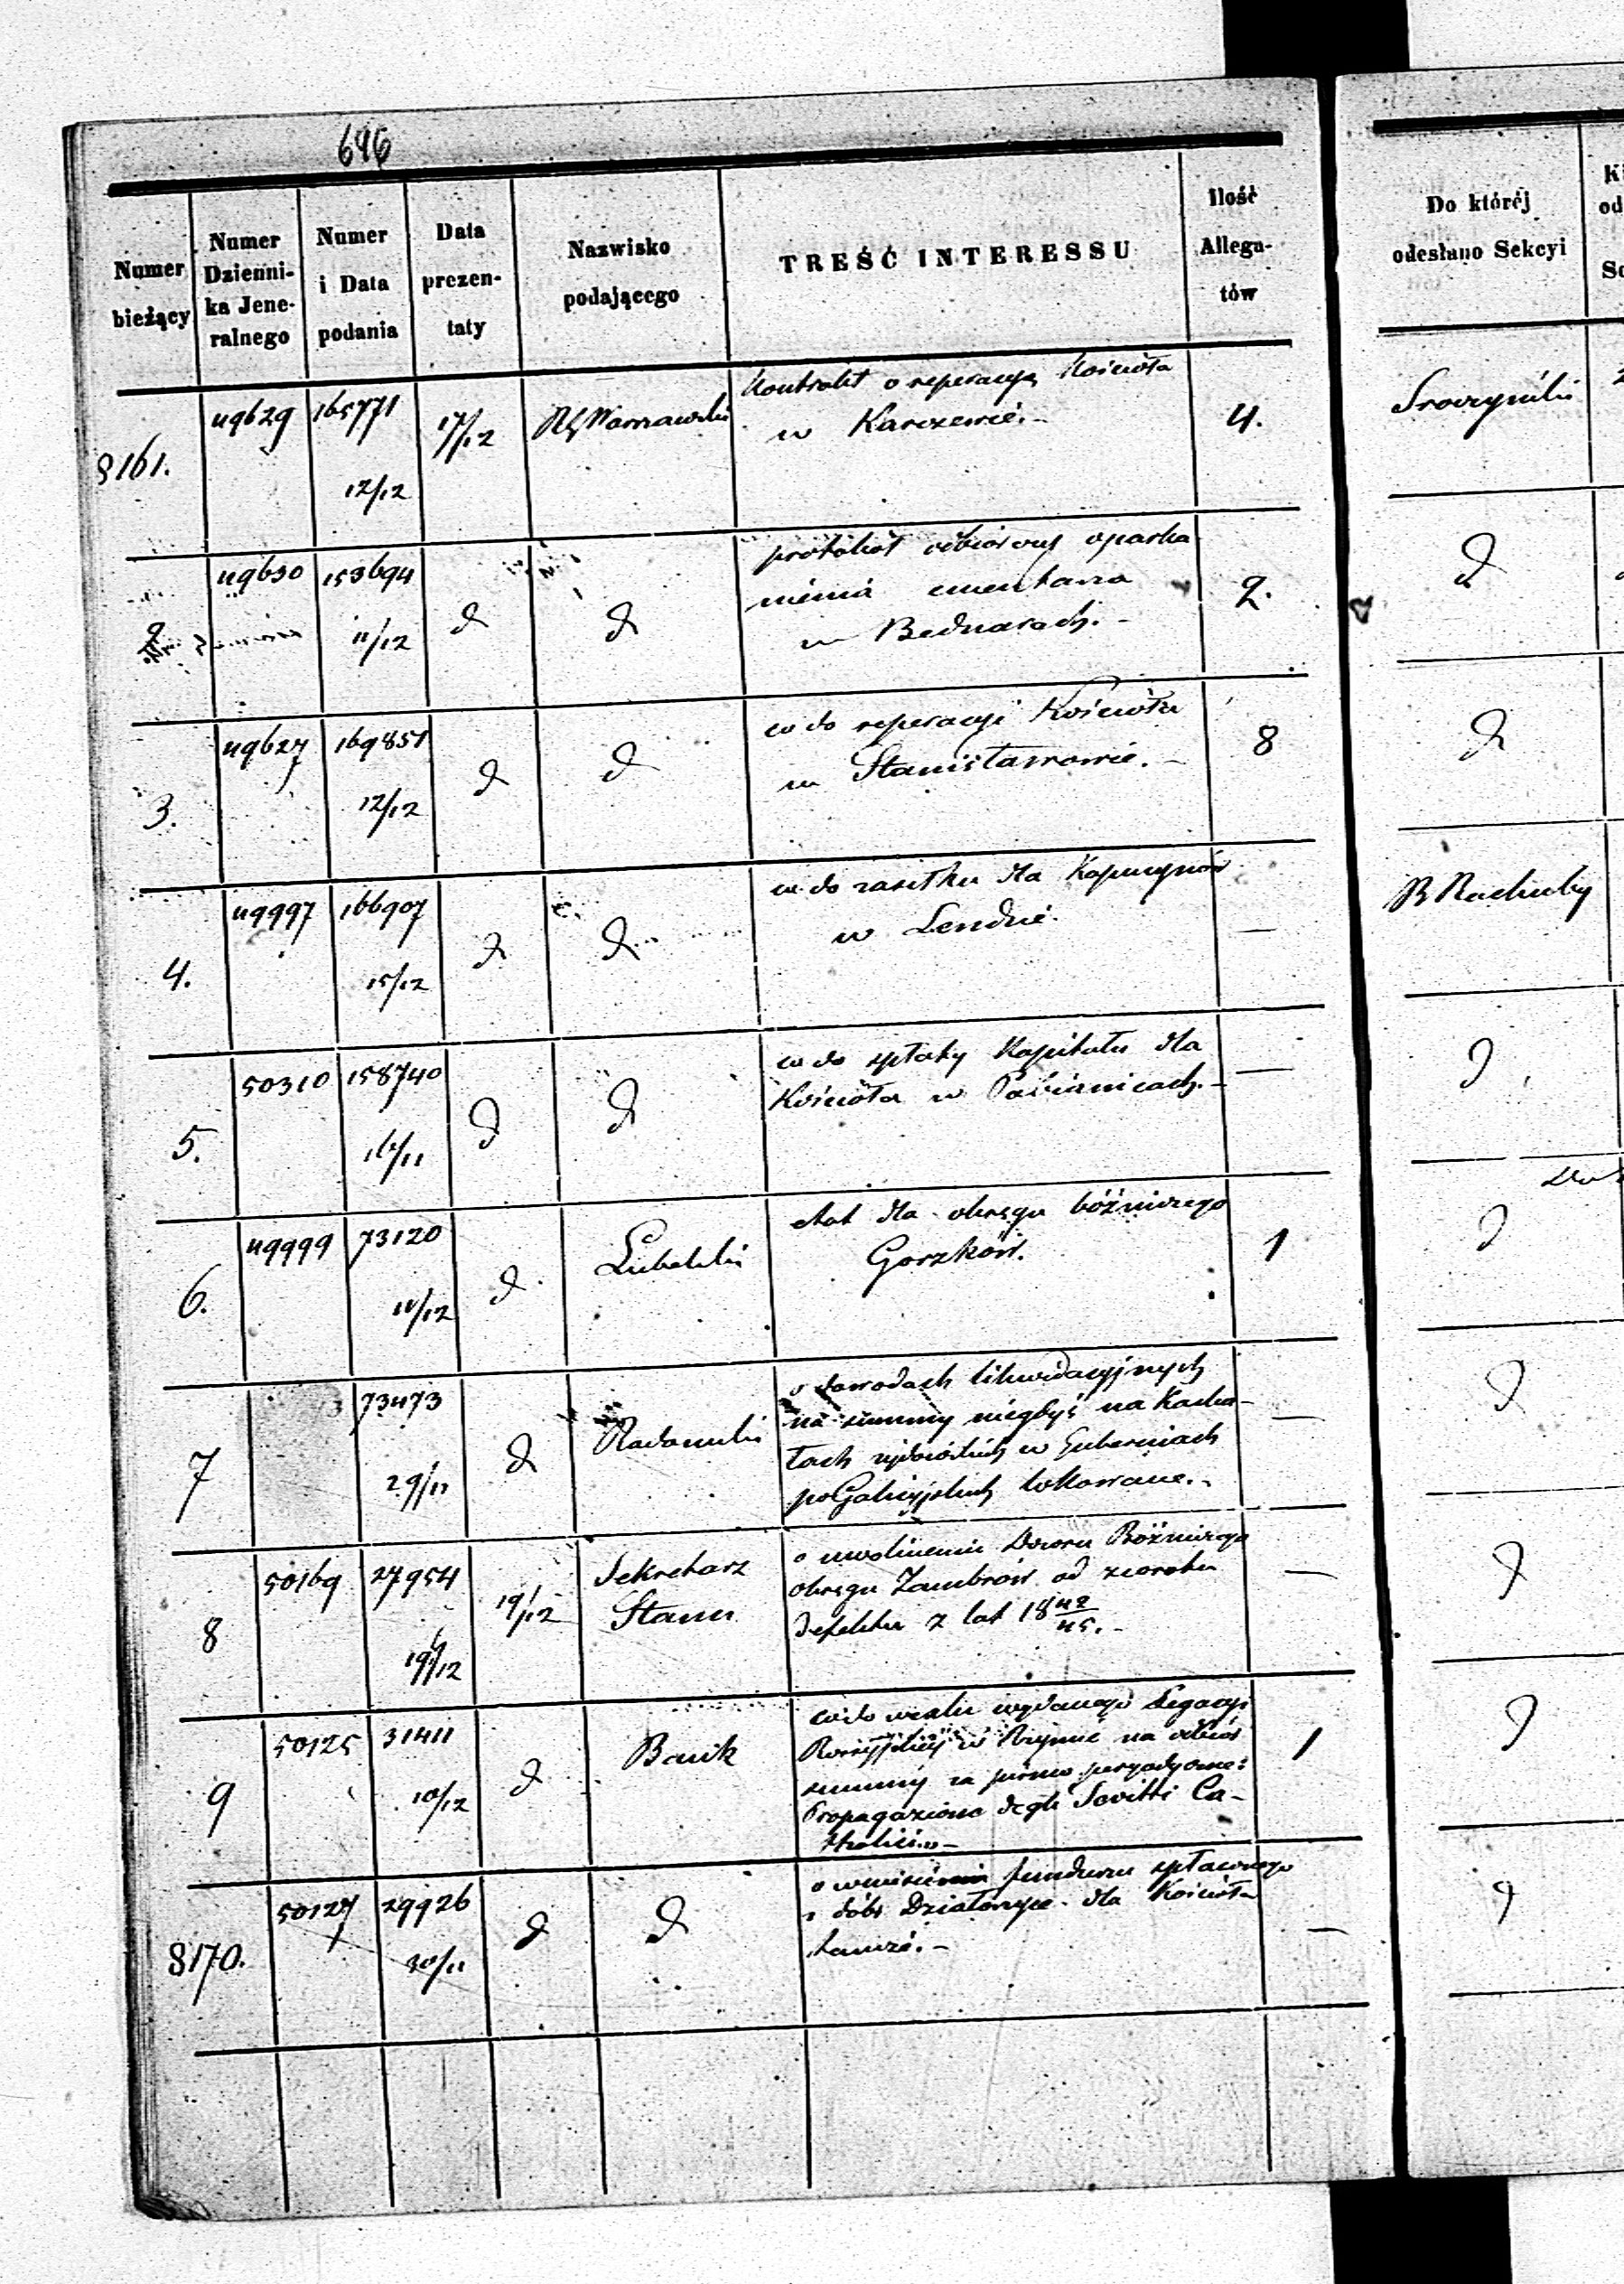 646
Numer bieżący
Numer Dzienni-ka Jene-ralnego
Numer i Data podania
Data prezen-taty
Nazwisko podającego
TREŚĆ INTERESSU
Ilość Allega-tów
Do któréj odesłano Sekcyi
8161.
49629
165771
12/12
17/12
RG Warszawski
Kontrakt o reperacyą Kościoła
w Karczewie.-
4.
2
49630
153694
11/12
d
d
protokół odbiorczy oparka
nienia cmentarza
w Bednarach.-
2.
d
3.
49627
169851
12/12
d
d
co do reperacyi Kościoła
w Stanisławowie.-
8
d
4.
49997
166907
15/12
d
d
co do zasiłku dla Kapucynów
w Lendzie.
—
R Rachuby
5.
50310
158740
d
d
co do spłaty Kapitału dla
Kościoła w Pabianicach.-
—
d
6.
49999
73120
11/12
d
Lubelski
etat dla okręgu bóźniczego
Gorzków.
1
d
7
73473
29/11
d
Radomski
o dowodach likwidacyjnych
na summy niegdyś na Kacha-
łach żydowskich w Guberniach
poGalicyjskich lokowane.-
—
d
8
50169
27954
19/12
Sekretarz
Stanu
o uwolnienie Dozoru Bóźniczego
okręgu Zambrów od zwrotu
defektu z lat 18 42/45.-
—
d
9
50125
31411
10/12
d
Bank
co do wexlu wydanego Legacyi
Rossyjskiej w Rzymie na odbiór
summy za pismo peryodyczne:
Propagazione degli Scritti Ca-
ttolici.-
1
d
8170.
50127
29926
30/11
d
d
o wniesieniu funduszu spławnego
z dóbr Działoszyce dla Kościoła
tamże.-
—
d